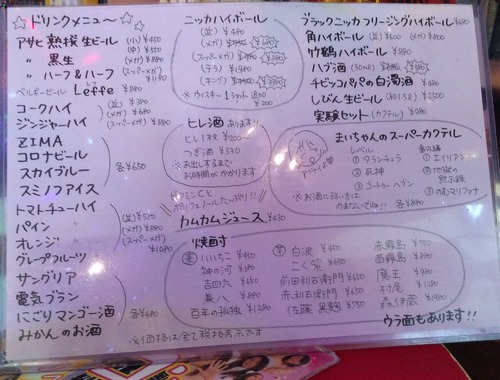 ☆ドリンクメニュー☆
アサヒ熟撰生ビール (小)¥450
(中)¥550
〃 黒生 (メガ)¥880
〃 ハーフ&ハーフ (スーパーメガ)¥1180
ベルギービール Leffe ¥880
コークハイ (並)¥380
ジンジャーハイ (メガ)¥680
(スーパーメガ)¥880
ZIMA
コロナビール
スカイブルー
スミノフアイス
各¥650
トマトチューハイ (並)¥580
パイン 〃 (メガ)¥880
オレンジ 〃 (スーパーメガ)
グレープフルーツ ¥1080
サングリア
電気ブラン
にごりマンゴー酒 各¥480
みかんのお酒
ニッカハイボール
(並)¥480
(メガ)
(スーパーメガ)
(テラ)
(キング)
※ウイスキー1ショット追加
¥200
ヒレ酒あります!!
ヒレ1枚 ¥200〜
つぎ酒 ¥330
※お出しするまで
お時間がかかります
ビタミンCと
ポリフェノールたっぷり!!
カムカムジュース ¥430
ブラックニッカフリージングハイボール ¥680
角ハイボール (並)¥600 (メガ)¥800
竹鶴ハイボール ¥880
ハブ酒 (30ml) ¥680
チビッコパパの白濁酒 ¥480
しびん生ビール (約1.5ℓ) ¥2500
実験セット (カクテル) ¥980
まいちゃんのスーパーカクテル
レベル
① クランチュラ
② 死神
③ ゴートゥーヘブン
番外編
① エイリアン
② 地獄の
黙示録
③ のむマリファナ
※お酒に弱い方は
のまないでね!! 各¥880
焼酎
麦 いいちこ ¥450
神の河 ¥380
吉四六 ¥650
兼八 ¥880
百年の孤独 ¥1280
芋 白波 ¥450
こく紫 ¥650
前田利右衛門 ¥650
赤利右衛門 ¥650
佐藤 黒麹 ¥750
赤霧島 ¥750
茜霧島 ¥880
魔王 ¥980
村尾 ¥1280
森伊蔵 ¥1980
※価格は全て税抜表示です
ウラ面もあります!!